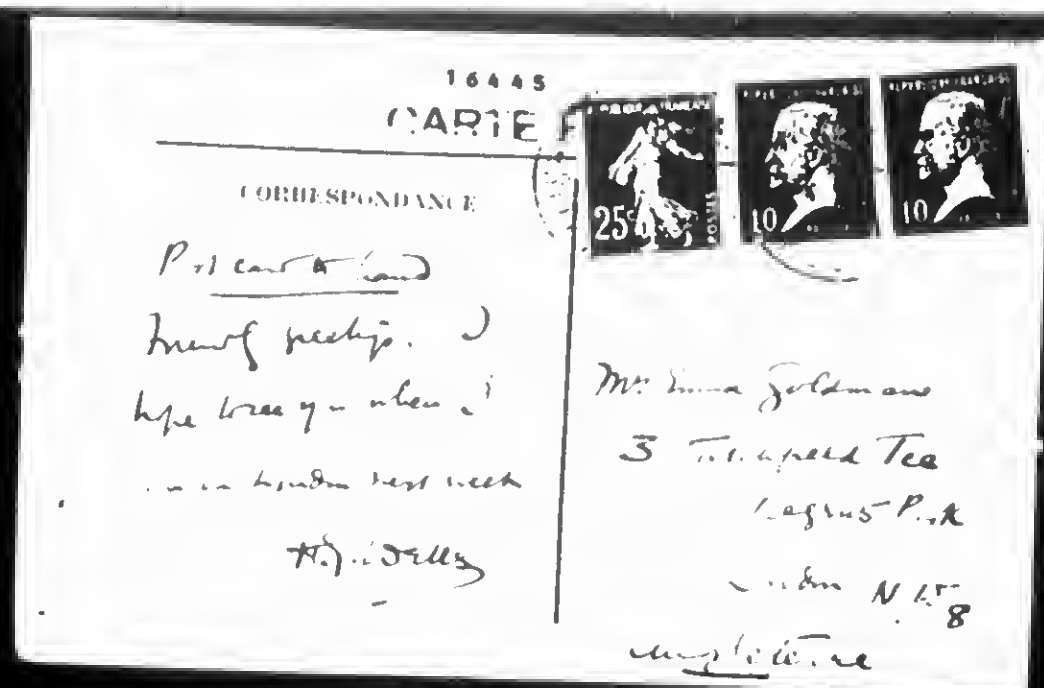 16445
CARTE
CORRESPONDANCE
Post card to hand
Friendly greetings. I
hope to see you when I
am in London next week
H. G. Wells
RÉPUBLIQUE FRANÇAISE
25c
POSTES
10
10
Emma Goldman
3 Tce
Regents Park
London N. W.
8
Angleterre